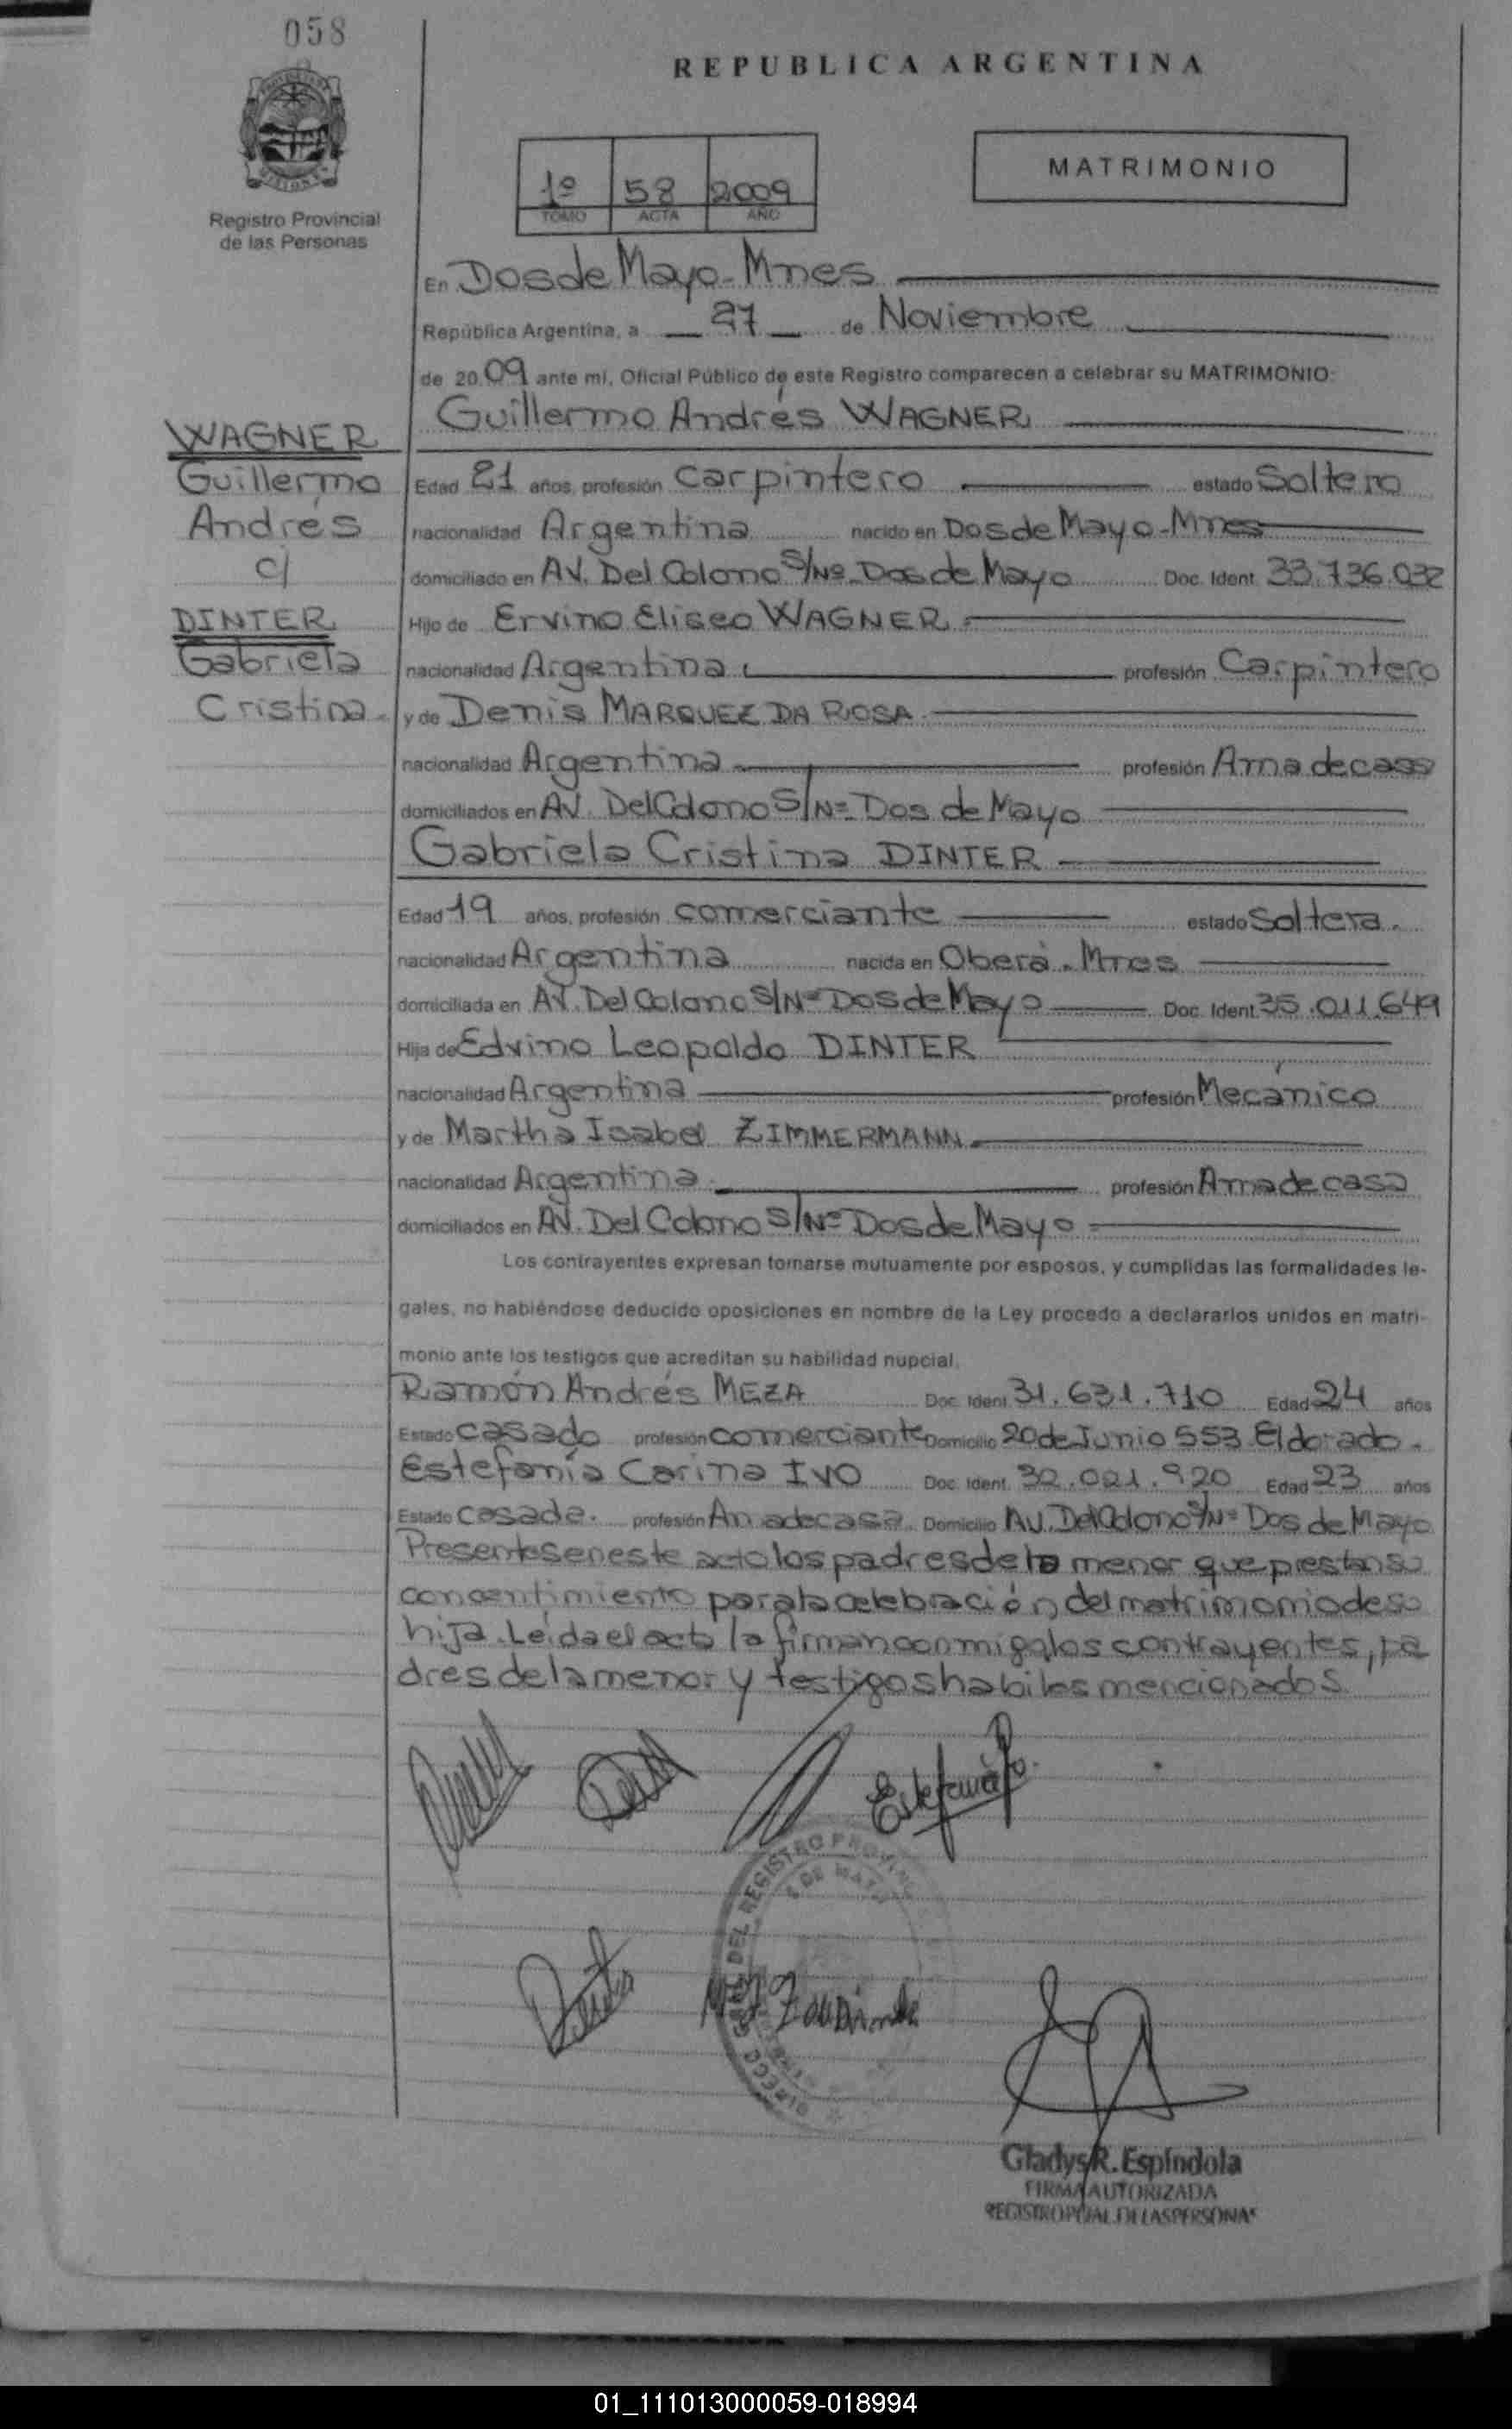 058
REPUBLICA ARGENTINA
MATRIMONIO
1º 58 2009
TOMO ACTA AÑO
Registro Provincial
de las Personas
En Dos de Mayo - Mnes
República Argentina, a 27 de Noviembre
de 2009 ante mi, Oficial Público de este Registro comparecen a celebrar su MATRIMONIO:
Guillermo Andrés WAGNER
WAGNER
Guillermo
Andrés
c/
DINTER
Gabriela
Cristina.
Edad 21 años, profesión carpintero estado Soltero
nacionalidad Argentina nacido en Dos de Mayo - Mnes
domiciliado en AV. Del Colono S/Nº Dos de Mayo Doc. Ident. 33.736.032
Hijo de Ervino Eliseo WAGNER
nacionalidad Argentina profesión Carpintero
y de Denis MARQUEZ DA ROSA
nacionalidad Argentina profesión Ama de casa
domiciliados en AV. Del Colono S/Nº Dos de Mayo
Gabriela Cristina DINTER
Edad 19 años, profesión comerciante estado Soltera.
nacionalidad Argentina nacida en Oberá - Mnes
domiciliada en AV. Del Colono S/Nº Dos de Mayo Doc. Ident. 35.011.649
Hija de Edvino Leopoldo DINTER
nacionalidad Argentina profesión Mecánico
y de Martha Isabel ZIMMERMANN
nacionalidad Argentina profesión Ama de casa
domiciliados en AV. Del Colono S/Nº Dos de Mayo
Los contrayentes expresan tomarse mutuamente por esposos, y cumplidas las formalidades le-
gales, no habiéndose deducido oposiciones en nombre de la Ley procedo a declararlos unidos en matri-
monio ante los testigos que acreditan su habilidad nupcial.
Ramón Andrés MEZA Doc. Ident. 31.631.710 Edad 24 años
Estado casado profesión comerciante Domicilio 20 de Junio 553 Eldorado.
Estefanía Carina IVO Doc. Ident. 32.021.920 Edad 23 años
Estado casada. profesión Ama de casa Domicilio AV. Del Colono S/Nº Dos de Mayo
Presentes en este acto los padres de la menor que prestan su
concentimiento para la celebración del matrimonio de su
hija. Leída el acta la firman conmigo los contrayentes, pa
dres de la menor y testigos habiles mencionados.
DEL REGISTRO PROVINC
Gladys R. Espíndola
FIRMA AUTORIZADA
REGISTRO PCIAL. DE LAS PERSONAS
01_111013000059-018994